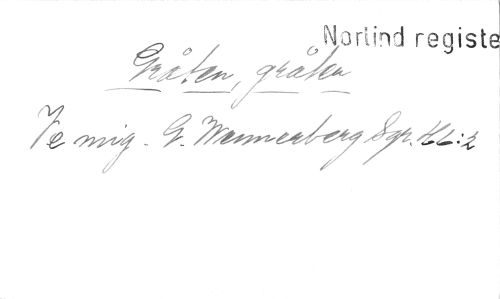 Norlind registe
Gråten, gråten
Ve mig. G. Wennerberg Sgr. H6:2